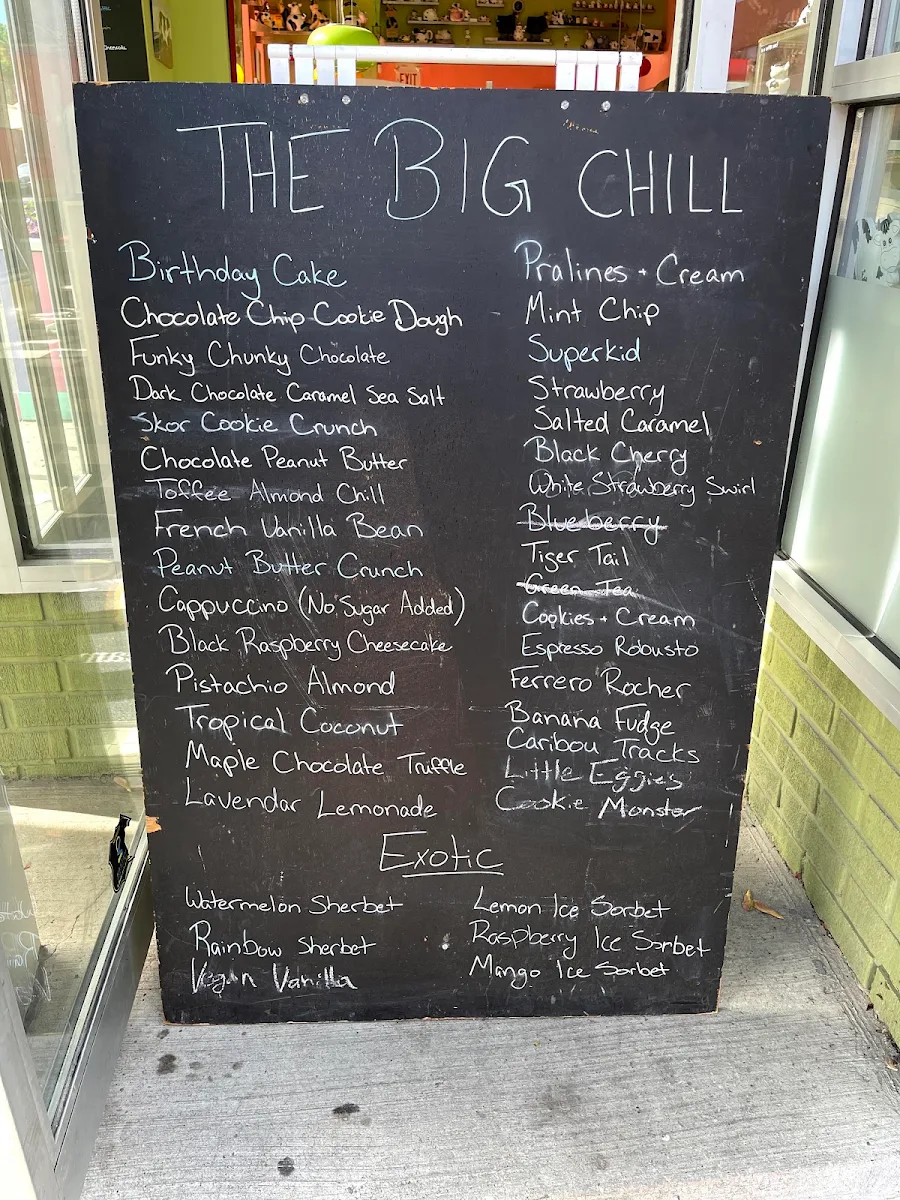 EXIT
THE BIG CHILL
Birthday Cake
Chocolate Chip Cookie Dough
Funky Chunky Chocolate
Dark Chocolate Caramel Sea Salt
Skor Cookie Crunch
Chocolate Peanut Butter
Toffee Almond Chill
French Vanilla Bean
Peanut Butter Crunch
Cappuccino (No Sugar Added)
Black Raspberry Cheesecake
Pistachio Almond
Tropical Coconut
Maple Chocolate Truffle
Lavendar Lemonade
Pralines + Cream
Mint Chip
Superkid
Strawberry
Salted Caramel
Black Cherry
White Strawberry Swirl
Blueberry
Tiger Tail
Green Tea
Cookies + Cream
Espresso Robusto
Ferrero Rocher
Banana Fudge
Caribou Tracks
Little Eggies
Cookie Monster
Exotic
Watermelon Sherbet
Rainbow Sherbet
Vegan Vanilla
Lemon Ice Sorbet
Raspberry Ice Sorbet
Mango Ice Sorbet